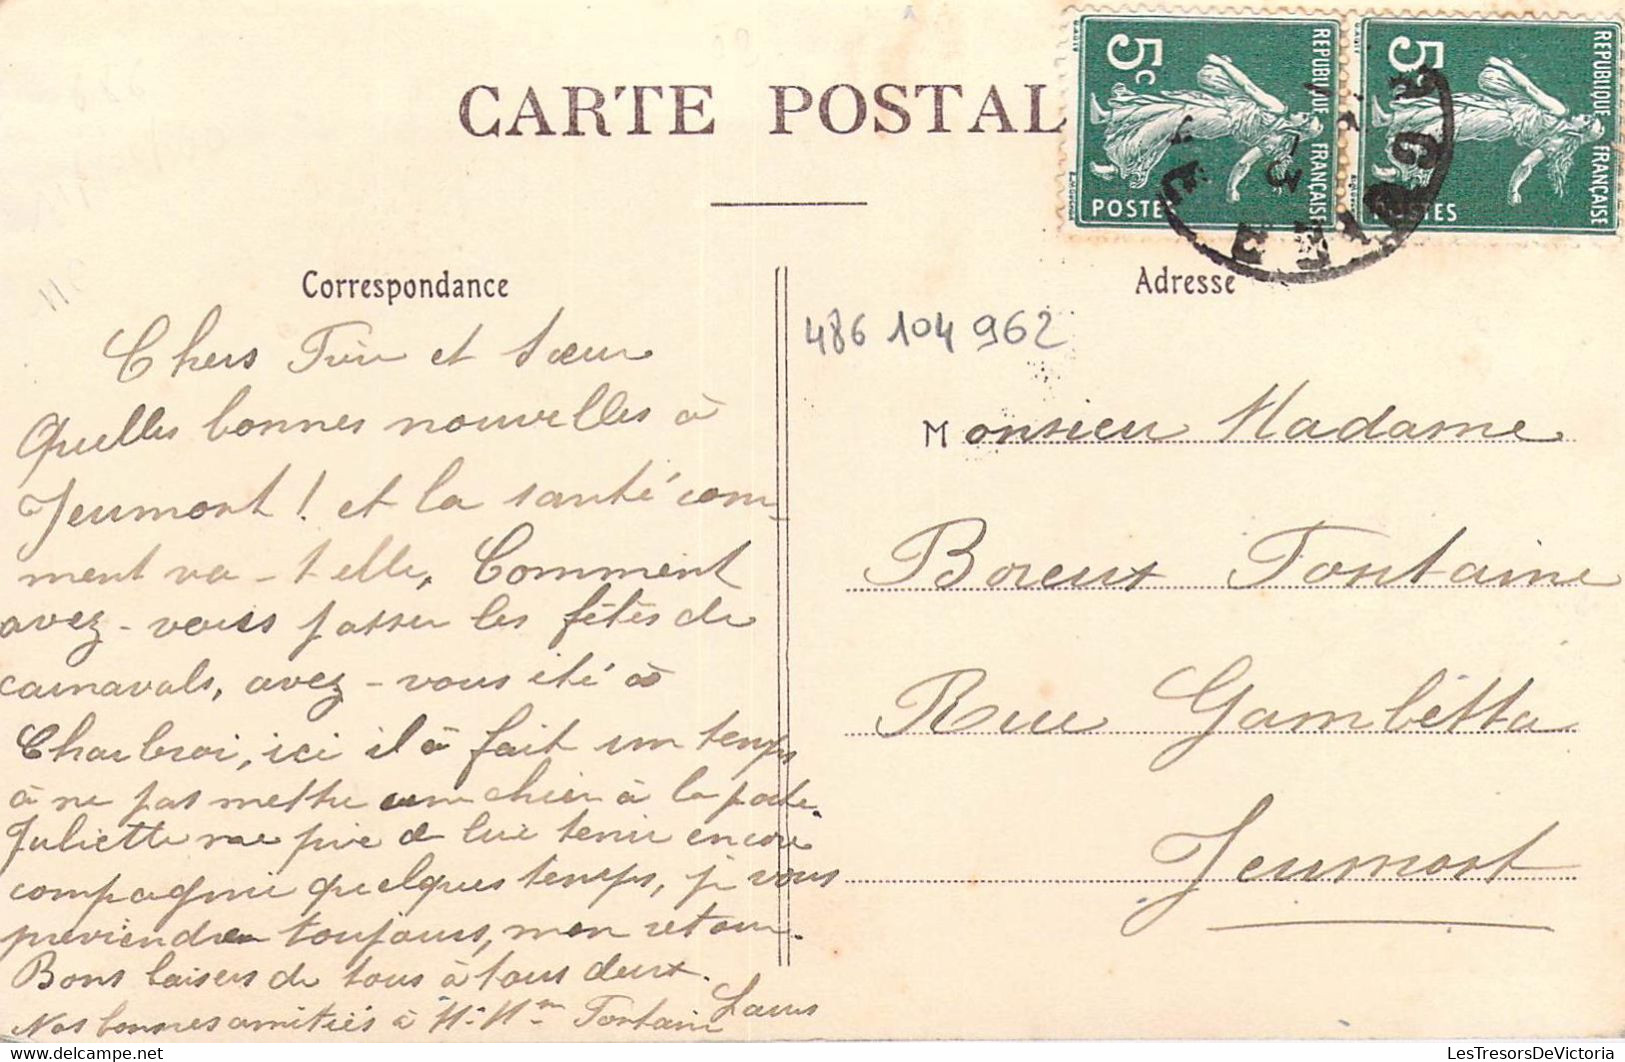 CARTE POSTAL
5c
REPUBLIQUE FRANÇAISE
POSTES
5
REPUBLIQUE FRANÇAISE
POSTES
Correspondance
Adresse
486 104 962
Chers Frère et Sœur
Quelles bonnes nouvelles à
Jeumont! et la santé com-
ment va-t elle, Comment
avez-vous passer les fêtes de
carnavals, avez-vous été à
Charleroi, ici il à fait un temps
à ne pas mettre un chien à la porte.
Juliette me prie de lui tenir encore
compagnie quelques temps, je vous
previendrer toujours, mon retour.
Bons baisers de tous à tous deux.
Nos bonnes amitiés à Mr Mme Fontaine
Monsieur Madame
Boreux Fontaine
Rue Gambêtta
Jeumont
LesTresorsDeVictoria